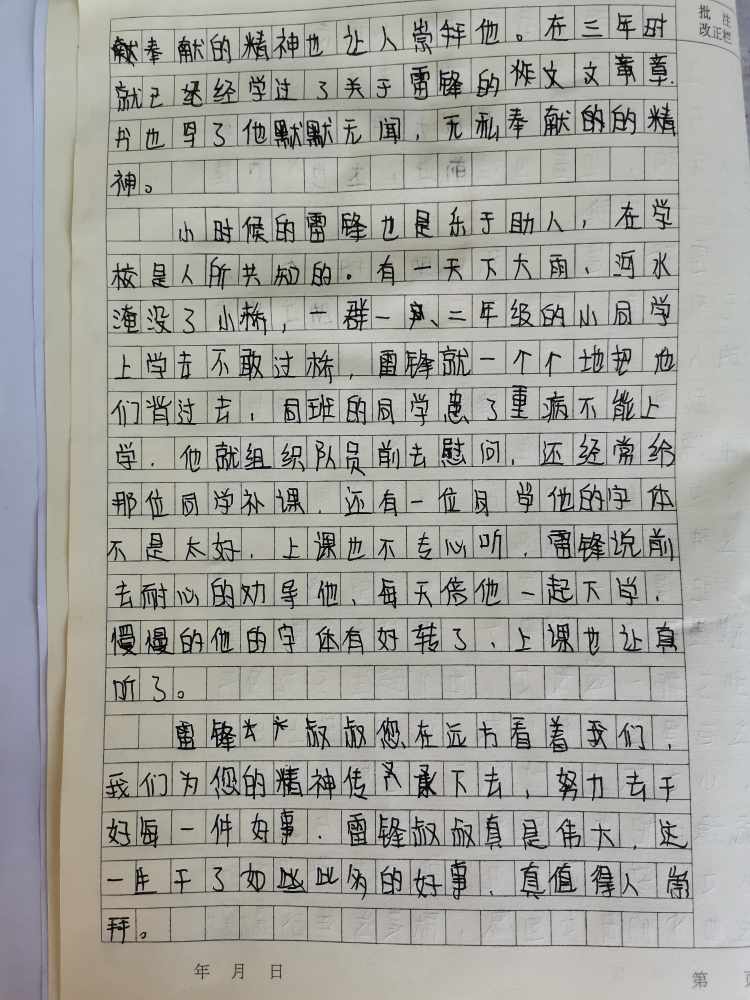 批 注
改正栏
献奉献的精神也让人崇拜他。在三年时
就已经学过了关于雷锋的作文文章.
书也写了他默默无闻，无私奉献的的精
神。
小时候的雷锋也是乐于助人，在学
校是人所共知的。有一天下大雨，河水
淹没了小桥，一群一、二年级的小同学
上学去不敢过桥，雷锋就一个个地把他
们背过去，同班的同学患了重病不能上
学.他就组织队员前去慰问，还经常给
那位同学补课.还有一位同学他的字体
不是太好.上课也不专心听.雷锋说前
去耐心的劝导他，每天陪他一起下学.
慢慢的他的字体有好转了，上课也认真
听了。
雷锋叔叔您在远方看着我们，
我们为您的精神传承下去，努力去干
好每一件好事.雷锋叔叔真是伟大，这
一生干了如此多的好事.真值得人崇
拜。
年 月 日
第 页